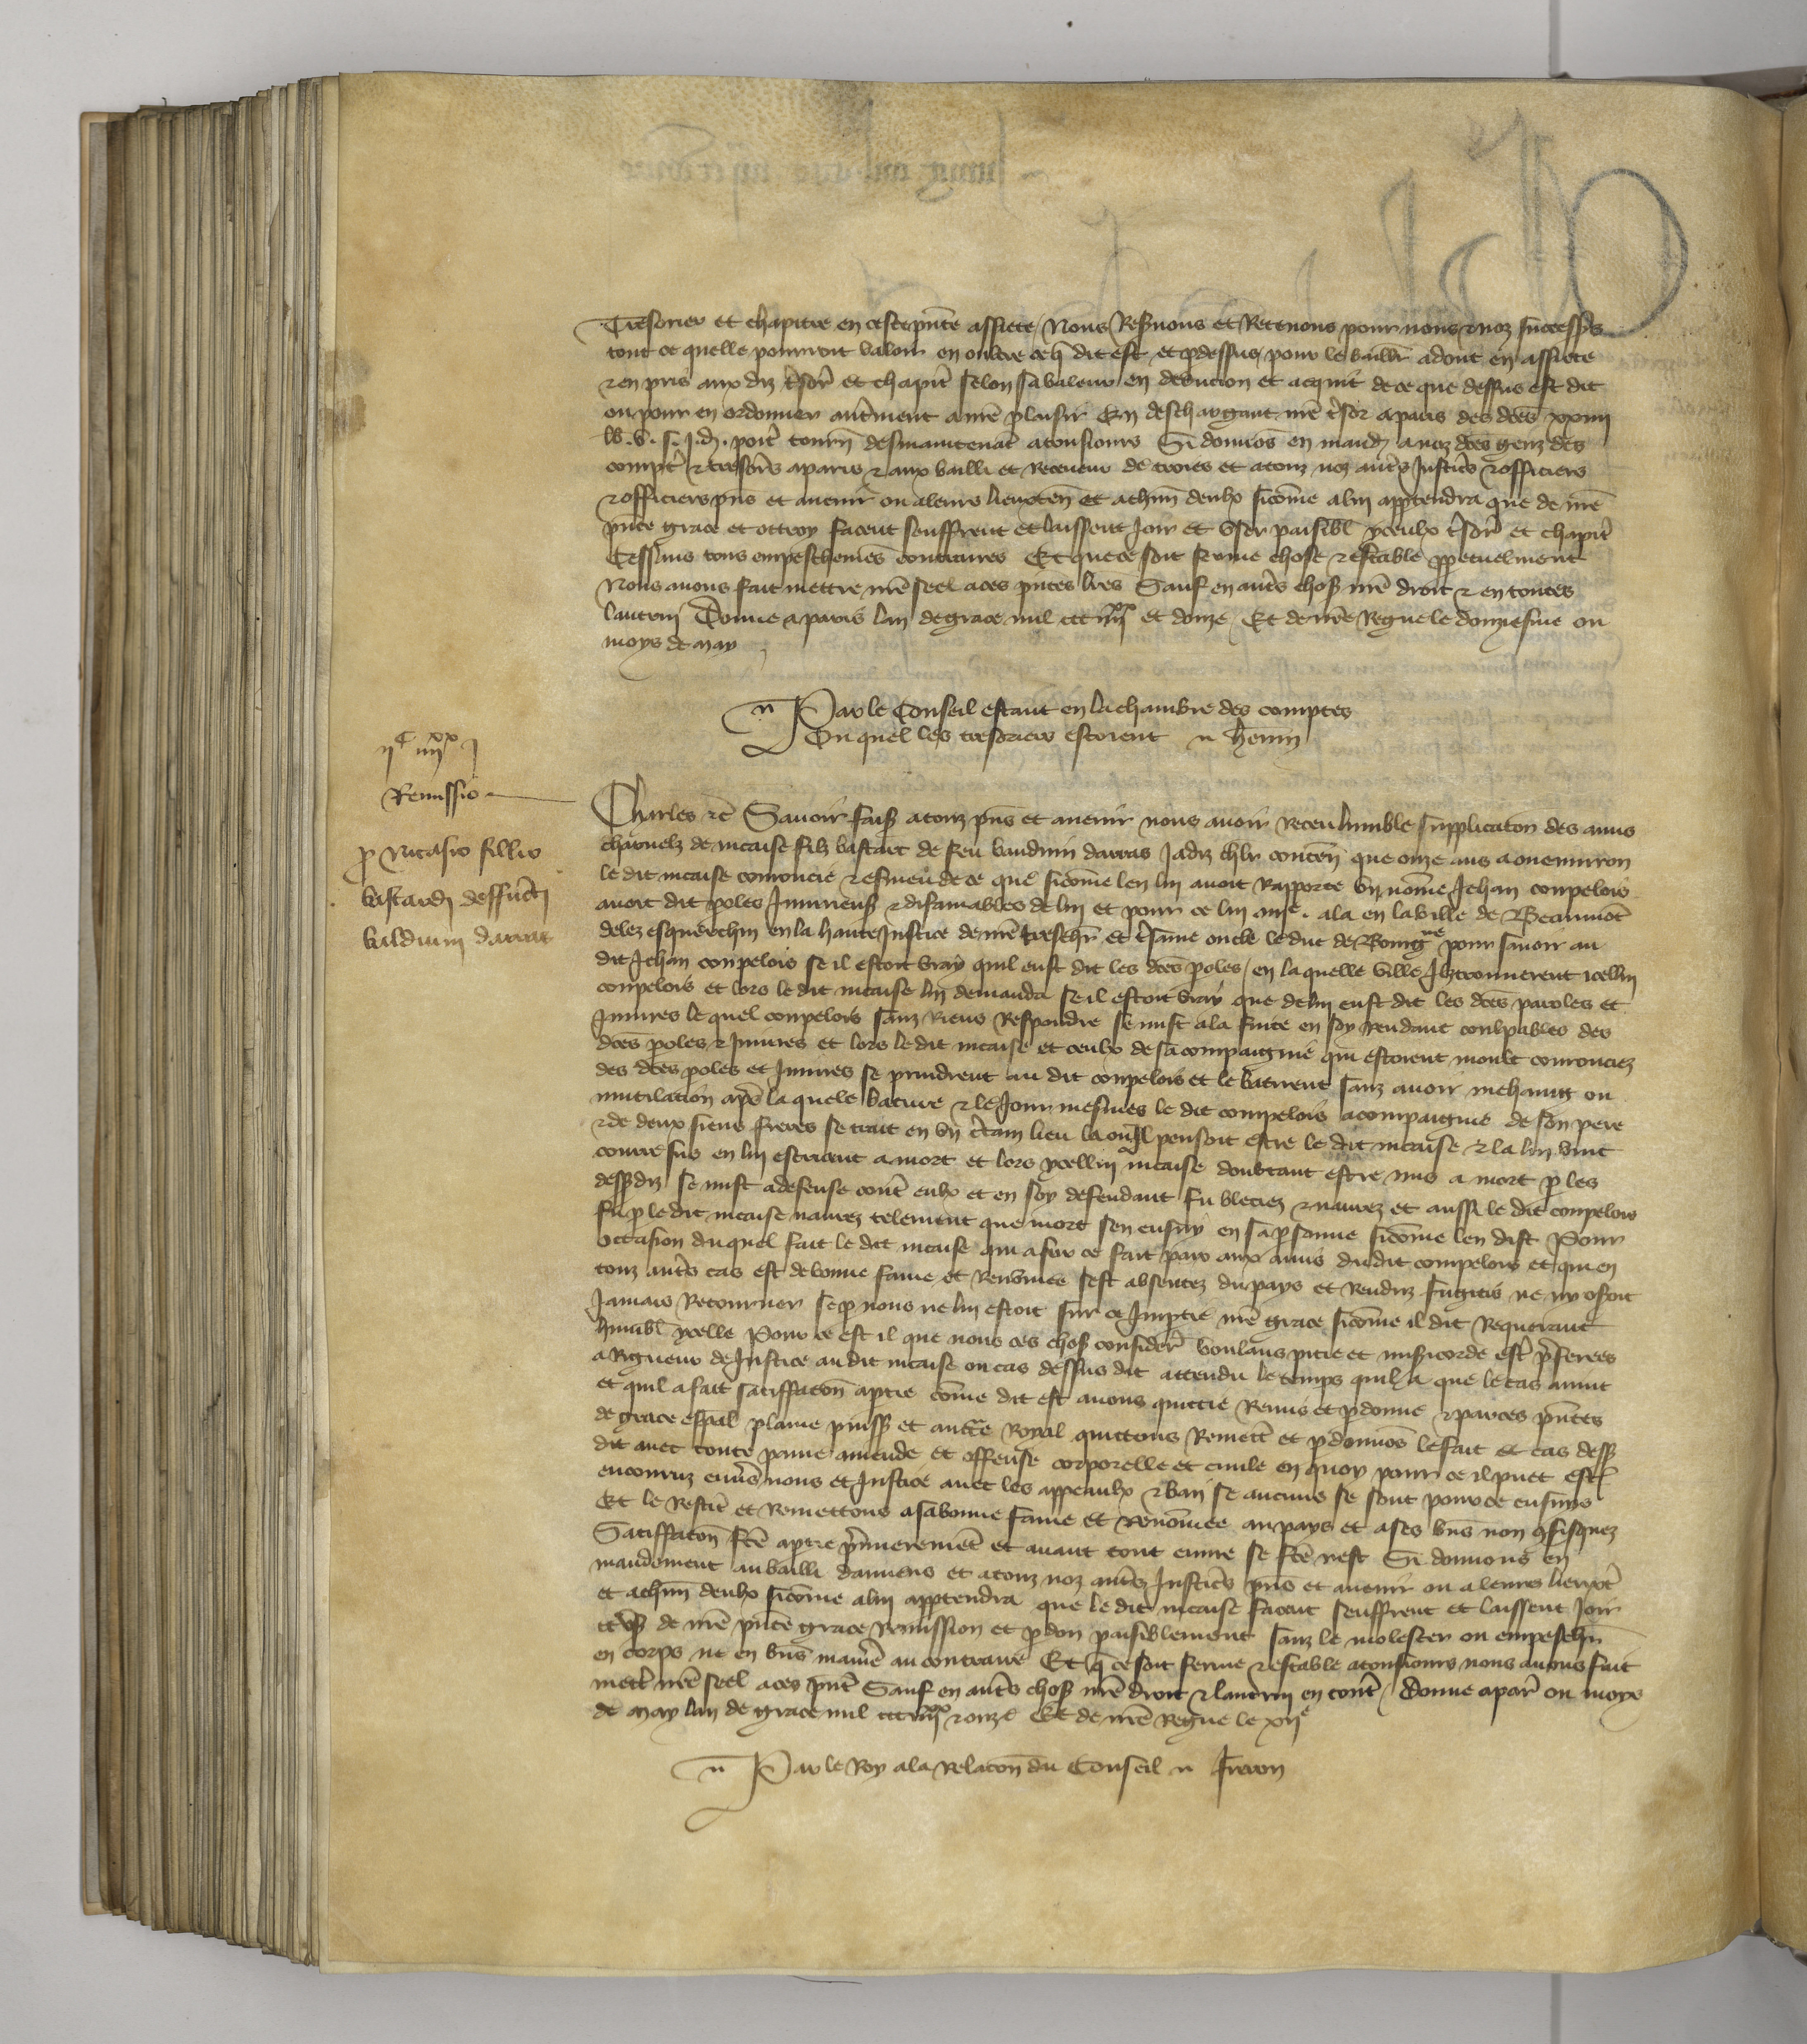 Tresorier et chapitre en ceste pnte assiete / Nous Reservons et Retenons pour nous & noz successrs
tout ce quelle pourroit valoir en oultre ce q dit est et pdessus / pour le bailler adont en assiete
& en pris aux diz tsor et chapit selon sa valeur en deducion et acquit de ce que dessus est dit
ou pour en ordonner autment a nre plaisir En deschargant nre tsor a paris des dces xxiiii
lb. v. s. i. d. poit tourn desmaintenat a tousiours Si donnos en mand a noz dces genz des
compt & tresors a paris & aux bailli et Receveur de troies et a touz noz autrs Justics & officiers
& officiers pns et avenir ou a leurs lieuxten et a chun deulx sicome a lui apptendra que de nre
pnte grace et ottroy facent seuffrent et laissent Joir et User paisibl yceulx tsor et chapit
Cessans tous empeschemes contraires Et que ce soit ferme chose & estable ppetuelment
Nous avons fait mettre nre seel a ces pntes lres Sauf en autrs choses nre droit & en toutes
lautrui Donne a paris lan de grace mil ccc iiiixx et douze / Et de nre Regne le douziesme ou
moys de May
Par le Conseil estant en la chambre des comptes
Ou quel les tresoriers estoient
iic iiiixx i
Remissio
p Nicasio fillio
bastardi deffuncti
balduini darras
Charles &c Savoir faisos a touz pns et avenir nous avoir Receu humble supplicaton des amis
charnelz de nicaise filz bastart de feu bauduin darras Jadiz chlr conten que onze ans a ou environ
le dit nicaise courroucie & esmeu de ce que sicome len lui avoit Rapporte un nome Jehan coupelois
avoit dit poles Iniurieuses & difamables de lui et pour ce lui onse. ala en la ville de Beaumot
delez esquerchin en la haute Justice de nre treschr et tsame oncle le duc de Bourgne pour savoir au
dit Jehan coupelois se il estoit vray quil eust dit les dces poles / en la quelle ville Ilz trouverent icellui
coupelois et lors le dit nicaise lui demanda se il estoit vray que de lui eust dit les dces paroles et
Iniures le quel coupelois sanz riens Respondre se mist a la fuite en soy rendant coulpables des
dces poles & Iniures et lors le dit nicaise et ceulx de sa compaignie qui estoient moult courrouciez
des dces poles et Iniures se prindrent au dit coupelois et le batirent sanz avoir mehaing ou
mutilation aps la quele bature & le Jour mesmes le dit coupelois acompaignie de son pere
& de deux siens freres se trait en un ctain lieu la ou Il pensoit estre le dit nicaise & la lui vint
courre sus en lui escriant a mort et lors ycellui nicaise doubtant estre mis a mort p les
dessusdiz se mist a defense cont eulx et en soy defendant fu bleciez & navrez et aussi le dit coupelois
fu p le dit nicaise navrez telement que mort sen ensuy en sa psonne sicome len dist Pour
occasion du quel fait le dit nicaise qui a sur ce fait paix aux amis du dit coupelois et qui en
touz autrs cas est de bonne fame et Renomee sest absentez du pays et renduz fugitis ne ny osoit
Jamais Retourner se p nous ne lui estoit sur ce Impartie nre grace sicome il dit Requerant
humbl ycelle Pour ce est il que nous ces choses consider voulans pitie et misicorde est pferees
a Rigueur de Justice au dit nicaise ou cas dessus dit attendu le temps quil a que le cas avint
et quil a fait satiffacon a ptie come dit est avons quittie Remis et pdonne & par ces pntes
de grace espal plaine puiss et aucte Royal quittons Remett et pdonnos le fait et cas dess
dit avec toute paine amende et offense corporelle et civile en quoy pour ce il puet estre
encouruz envers nous et Justice avec les appeaulx & ban se aucuns se sont pour ce ensuiz
Et le Restit et Remettons a sa bonne fame et renomee au pays et a ses bns non confisquez
Satiffacon fce a ptie pmieremet et avant tout euvre se fce nest Si donnons en
mandement au bailli damiens et a touz noz autrs Justics pns et avenir ou a leurs lieuxt
et a chun deulx sicome a lui apptendra que le dit nicaise facent seuffrent et laissent Joir
et user de nre pnte grace remission et pdon paisiblement sanz le molester ou empeschr
en corps ne en bns maniere au contraire Et q ce soit ferme & estable a tousiours nous avons fait
mett nre seel a ces pnt Sauf en autrs choses nre droit & lautrui en tout / Donne a par ou moys
de May lan de grace mil ccc iiiixx & onze Et de nre Regne le xiie
Par le Roy a la relacon du Conseil Freron